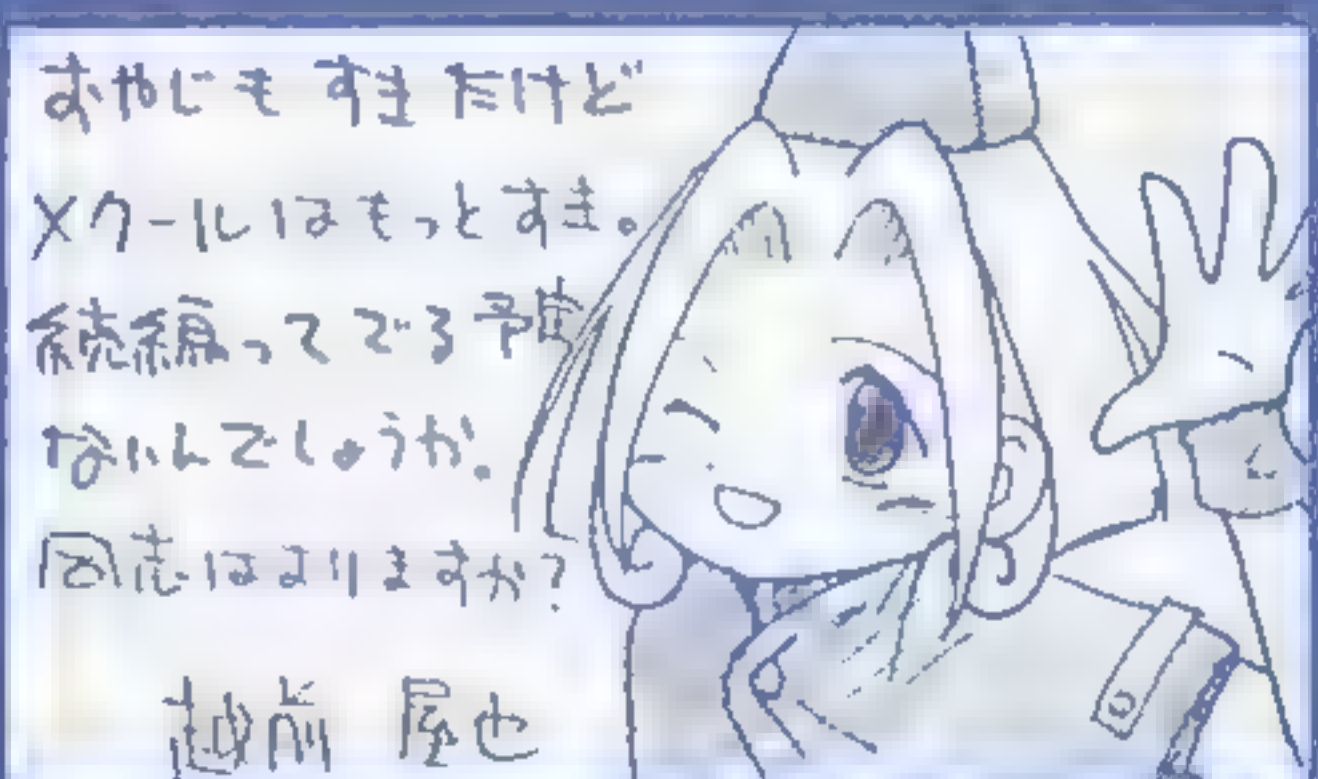 おやじもすきだけど
Xクールはもっとすき。
続編ってでる予定
ないんでしょうか。
はありますか?
越前 屋也